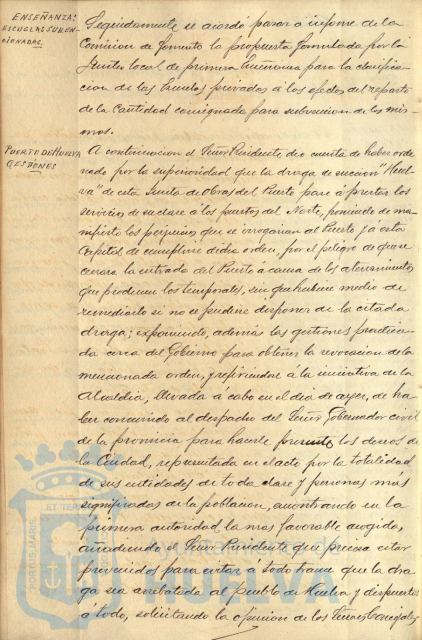 ENSEÑANZA:
ESCUELAS SUBVEN-
CIONADAS.
Seguidamente se acordó pasar á informe de la
Comision de fomento la propuesta formulada por la
Junta local de primera Enseñanza para la clasifica-
cion de las Escuelas privadas á los efectos del reparto
de la cantidad consignada para subvencion de las mis-
mas.
PUERTO DE HUELVA
GESTIONES
A continuacion el Señor Presidente, dió cuenta de haber orde-
nado por la superioridad que la draga de succion "Huel-
va" de esta Junta de Obras del Puerto pase á prestar los
servicios de su clase á los puertos del Norte, poniendo de ma-
nifiesto los perjuicios que se irrogarian al Puerto y á esta
Capital de cumplirse dicha orden, por el peligro de que se
cerrara la entrada del Puerto á causa de los aterramientos
que producen los temporales, sin que hubiese medio de
remediarlo si no se pudiese disponer de la citada
draga; exponiendo, además las gestiones practica-
da cerca del Gobierno para obtener la revocacion de la
mencionada orden, y refiriéndose á la iniciativa de la
Alcaldia, llevada á cabo en el dia de ayer, de ha-
ber concurrido al despacho del Señor Gobernador civil
de la provincia para hacerle presente los deseos de
la Ciudad, representada en el acto por la totalidad
de sus entidades de toda clase y personas mas
significadas de la poblacion, encontrando en la
primera autoridad la mas favorable acogida,
añadiendo el Señor Presidente que precisa estar
prevenidos para evitar á todo trance que la dra-
ga sea arrebatada al pueblo de Huelva y dispuestos
á todo, solicitando la opinion de los Señores Concejales
PORTUS MARIS
ET TER
Ayuntamiento de
HUELVA